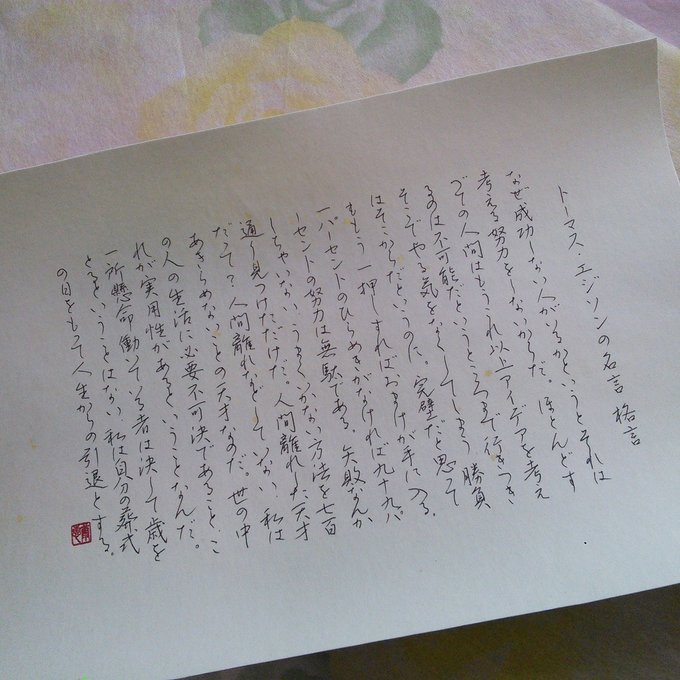 トーマス・エジソンの名言格言
なぜ成功しない人がいるかというとそれは
考える努力をしないからだ。ほとんどす
べての人間はもうこれ以上アイデアを考え
るのは不可能だというところまで行きつき
そこでやる気をなくしてしまう 勝負
はそこからだというのに。完璧だと思って
ももう一押しすればおまけが手に入る。
一パーセントのひらめきがなければ九十九パ
ーセントの努力は無駄である 失敗なんか
しちゃいない うまくいかない方法を七百
通り見つけただけだ。人間離れした天才
だって？人間離れなどしていない 私は
あきらめないことの天才なのだ。世の中
の人の生活に必要不可決であること、こ
れが実用性があるということなんだ。
一所懸命働いている者は決して歳を
とるということはない 私は自分の葬式
の日をもって人生からの引退とする。